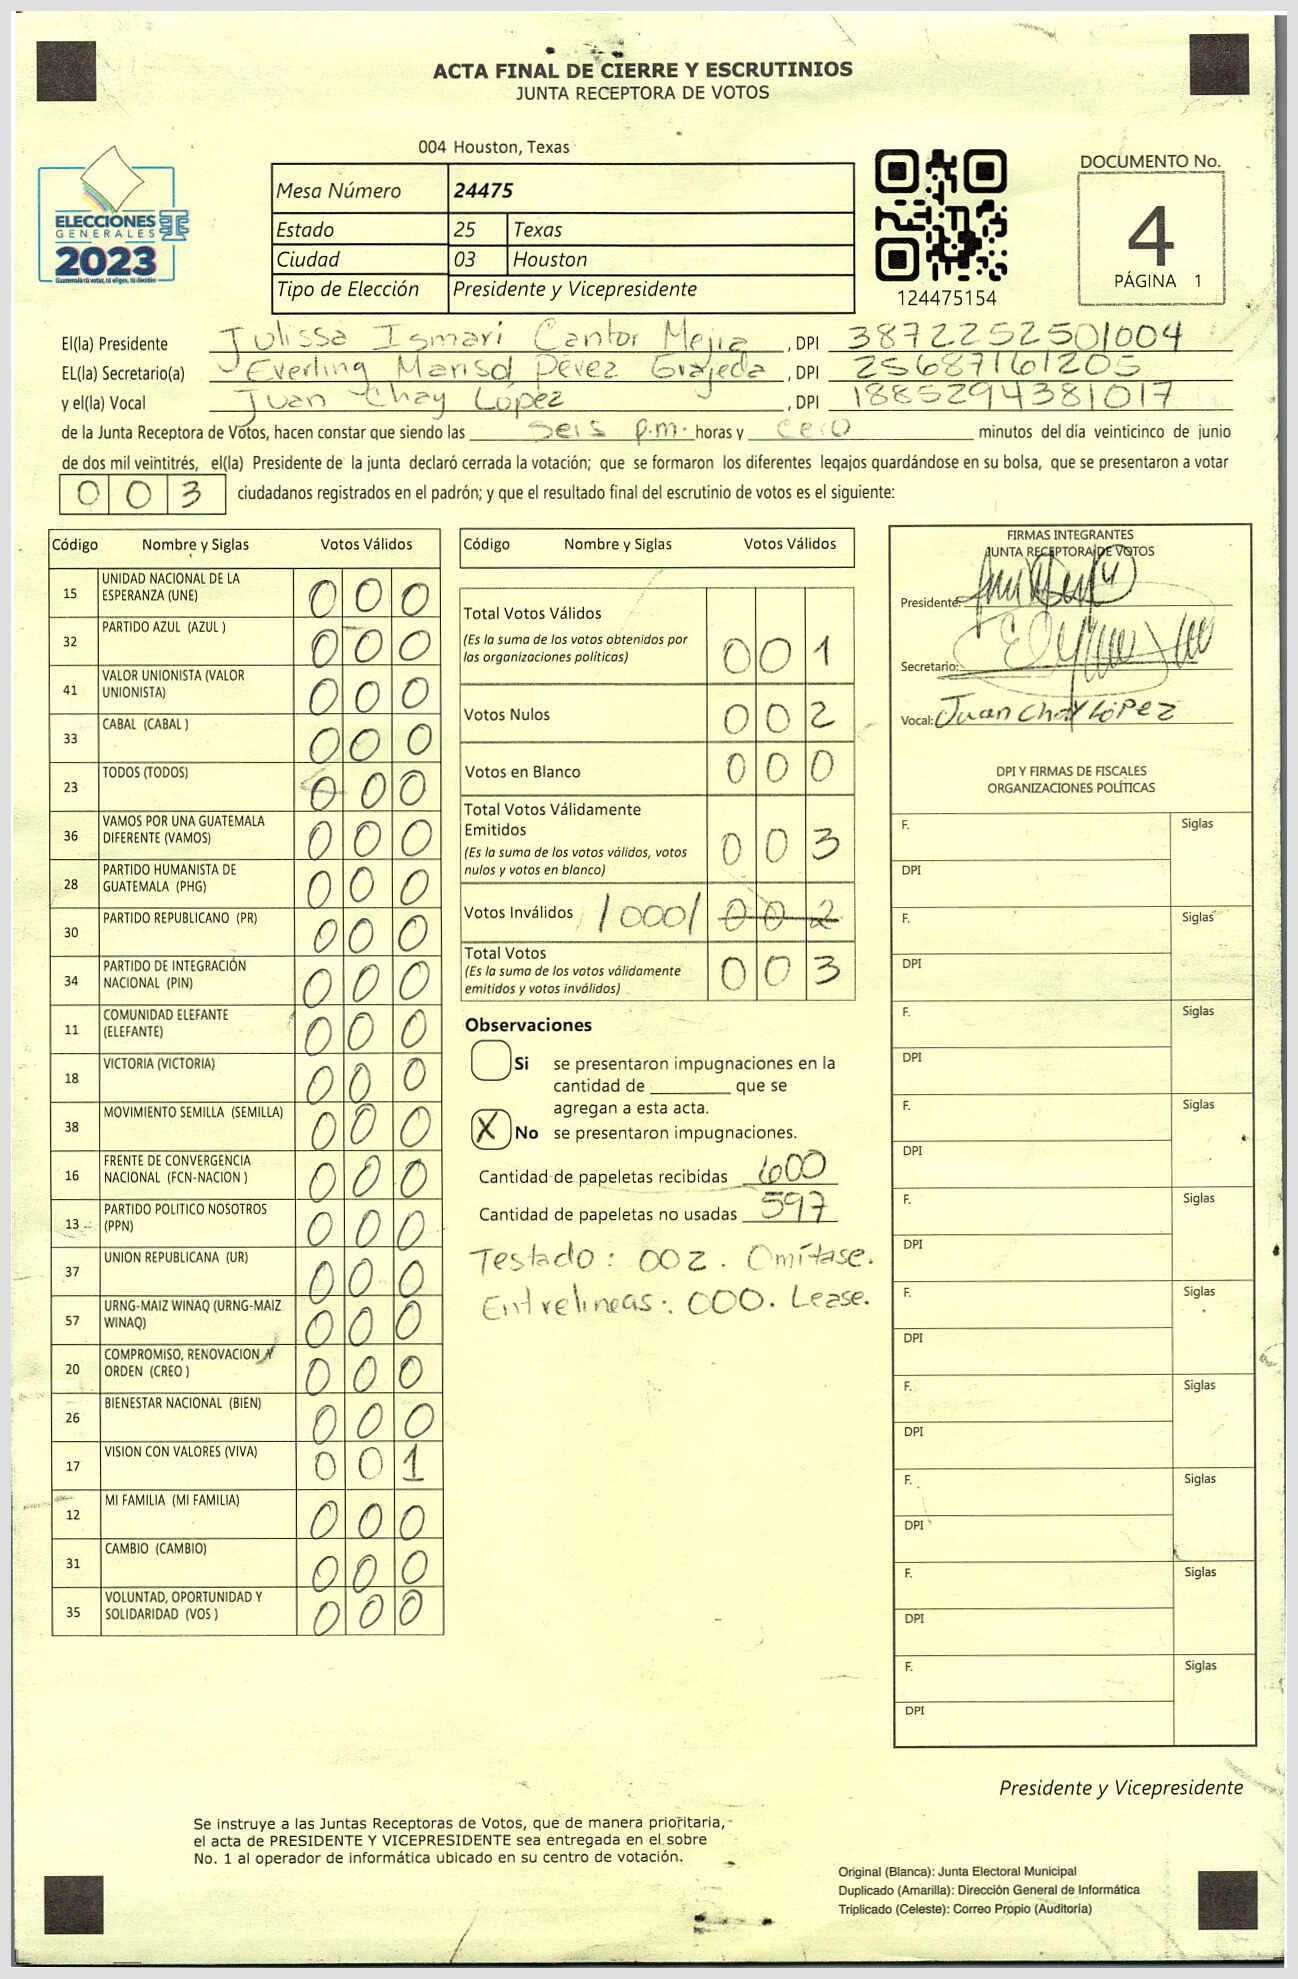 ACTA FINAL DE CIERRE Y ESCRUTINIOS
JUNTA RECEPTORA DE VOTOS
004 Houston, Texas
ELECCIONES
GENERALES
2023
Guatemala tú votas, tú eliges, tú decides
Mesa Número 24475
Estado 25 Texas
Ciudad 03 Houston
Tipo de Elección Presidente y Vicepresidente
124475154
DOCUMENTO No.
4
PÁGINA 1
El(la) Presidente Julissa Ismari Cantor Mejia , DPI 3872252501004
EL(la) Secretario(a) Everling Marisol Pérez Grajeda , DPI 25687161205
y el(la) Vocal Juan Chay López , DPI 1885294381017
de la Junta Receptora de Votos, hacen constar que siendo las seis p.m. horas y cero minutos del día veinticinco de junio
de dos mil veintitrés, el(la) Presidente de la junta declaró cerrada la votación; que se formaron los diferentes legajos guardándose en su bolsa, que se presentaron a votar
0 0 3 ciudadanos registrados en el padrón; y que el resultado final del escrutinio de votos es el siguiente:
Código Nombre y Siglas Votos Válidos
15 UNIDAD NACIONAL DE LA
ESPERANZA (UNE) 0 0 0
32 PARTIDO AZUL (AZUL ) 0 0 0
41 VALOR UNIONISTA (VALOR
UNIONISTA) 0 0 0
33 CABAL (CABAL ) 0 0 0
23 TODOS (TODOS) 0 0 0
36 VAMOS POR UNA GUATEMALA
DIFERENTE (VAMOS) 0 0 0
28 PARTIDO HUMANISTA DE
GUATEMALA (PHG) 0 0 0
30 PARTIDO REPUBLICANO (PR) 0 0 0
34 PARTIDO DE INTEGRACIÓN
NACIONAL (PIN) 0 0 0
11 COMUNIDAD ELEFANTE
(ELEFANTE) 0 0 0
18 VICTORIA (VICTORIA) 0 0 0
38 MOVIMIENTO SEMILLA (SEMILLA) 0 0 0
16 FRENTE DE CONVERGENCIA
NACIONAL (FCN-NACION ) 0 0 0
13 PARTIDO POLITICO NOSOTROS
(PPN) 0 0 0
37 UNION REPUBLICANA (UR) 0 0 0
57 URNG-MAIZ WINAQ (URNG-MAIZ
WINAQ) 0 0 0
20 COMPROMISO, RENOVACION Y
ORDEN (CREO ) 0 0 0
26 BIENESTAR NACIONAL (BIEN) 0 0 0
17 VISION CON VALORES (VIVA) 0 0 1
12 MI FAMILIA (MI FAMILIA) 0 0 0
31 CAMBIO (CAMBIO) 0 0 0
35 VOLUNTAD, OPORTUNIDAD Y
SOLIDARIDAD (VOS ) 0 0 0
Código Nombre y Siglas Votos Válidos
Total Votos Válidos
(Es la suma de los votos obtenidos por
las organizaciones políticas) 0 0 1
Votos Nulos 0 0 2
Votos en Blanco 0 0 0
Total Votos Válidamente
Emitidos
(Es la suma de los votos válidos, votos
nulos y votos en blanco) 0 0 3
Votos Inválidos /000/ 0 0 2
Total Votos
(Es la suma de los votos válidamente
emitidos y votos inválidos) 0 0 3
Observaciones
Si se presentaron impugnaciones en la
cantidad de ________ que se
agregan a esta acta.
X No se presentaron impugnaciones.
Cantidad de papeletas recibidas 600
Cantidad de papeletas no usadas 597
Testado: 002. Omítase.
Entrelineas: 000. Lease.
FIRMAS INTEGRANTES
JUNTA RECEPTORA DE VOTOS
Presidente:
Secretario:
Vocal: Juan Chay López
DPI Y FIRMAS DE FISCALES
ORGANIZACIONES POLÍTICAS
F. Siglas
DPI
F. Siglas
DPI
F. Siglas
DPI
F. Siglas
DPI
F. Siglas
DPI
F. Siglas
DPI
F. Siglas
DPI
F. Siglas
DPI
F. Siglas
DPI
F. Siglas
DPI
Presidente y Vicepresidente
Se instruye a las Juntas Receptoras de Votos, que de manera prioritaria,
el acta de PRESIDENTE Y VICEPRESIDENTE sea entregada en el sobre
No. 1 al operador de informática ubicado en su centro de votación.
Original (Blanca): Junta Electoral Municipal
Duplicado (Amarilla): Dirección General de Informática
Triplicado (Celeste): Correo Propio (Auditoría)